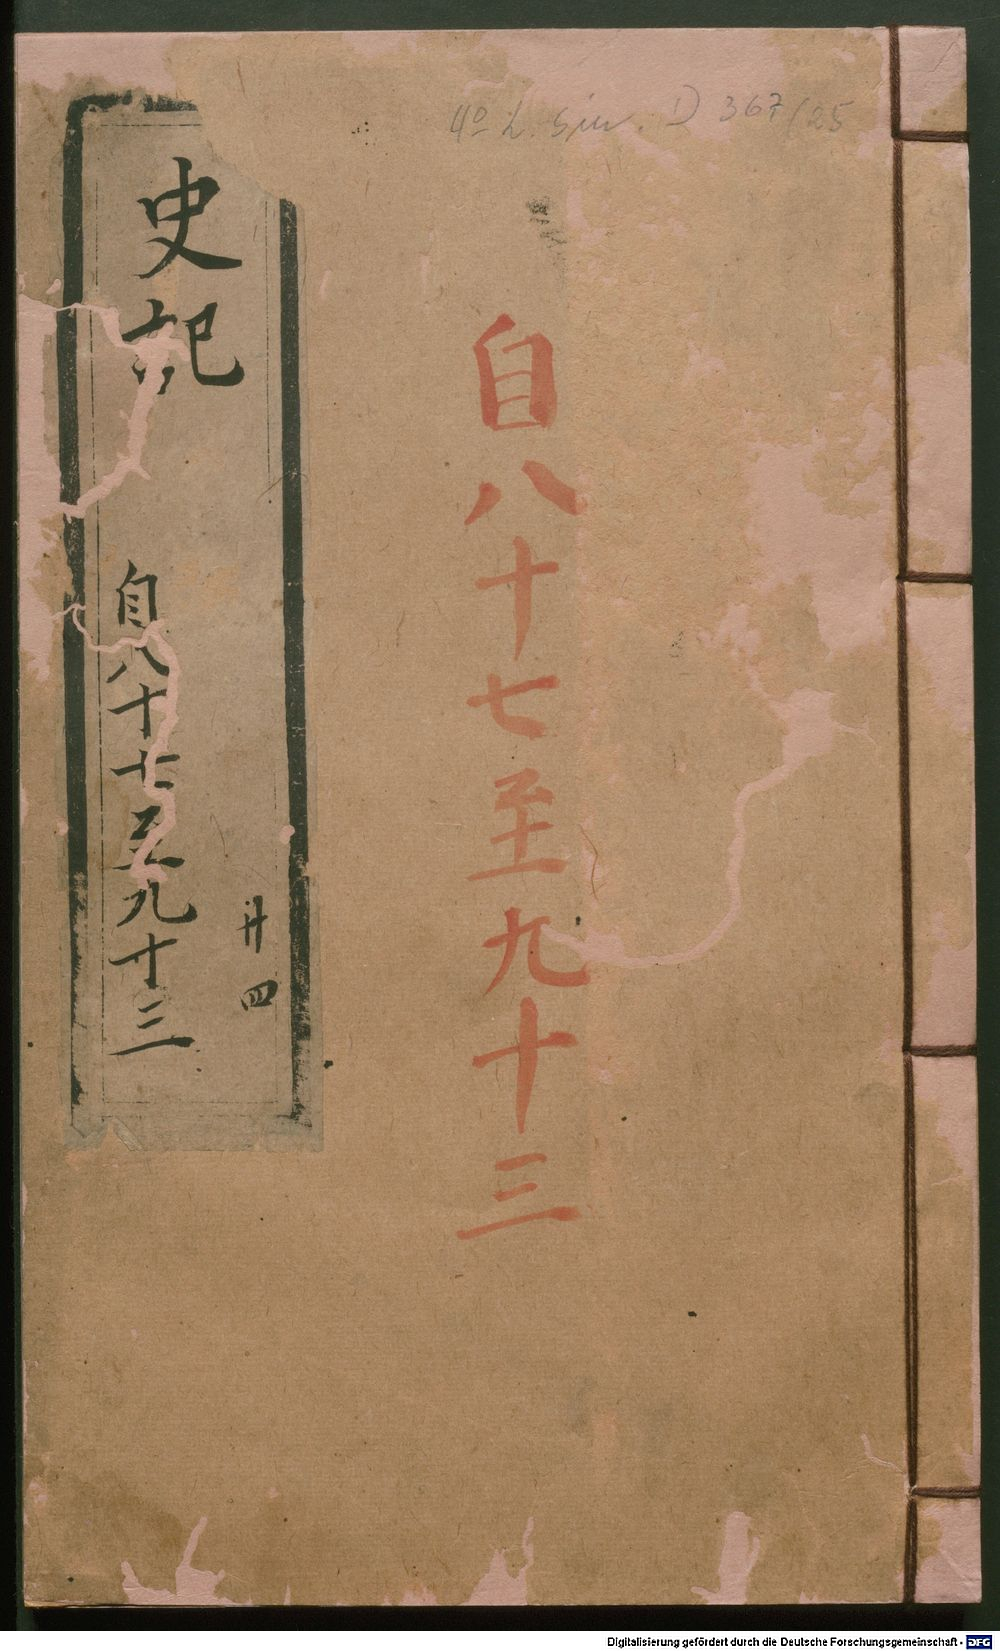 4° L. sin. D 367/25
自八十七至九十三
史記
自八十七至九十三
廿四
Digitalisierung gefördert durch die Deutsche Forschungsgemeinschaft - DFG